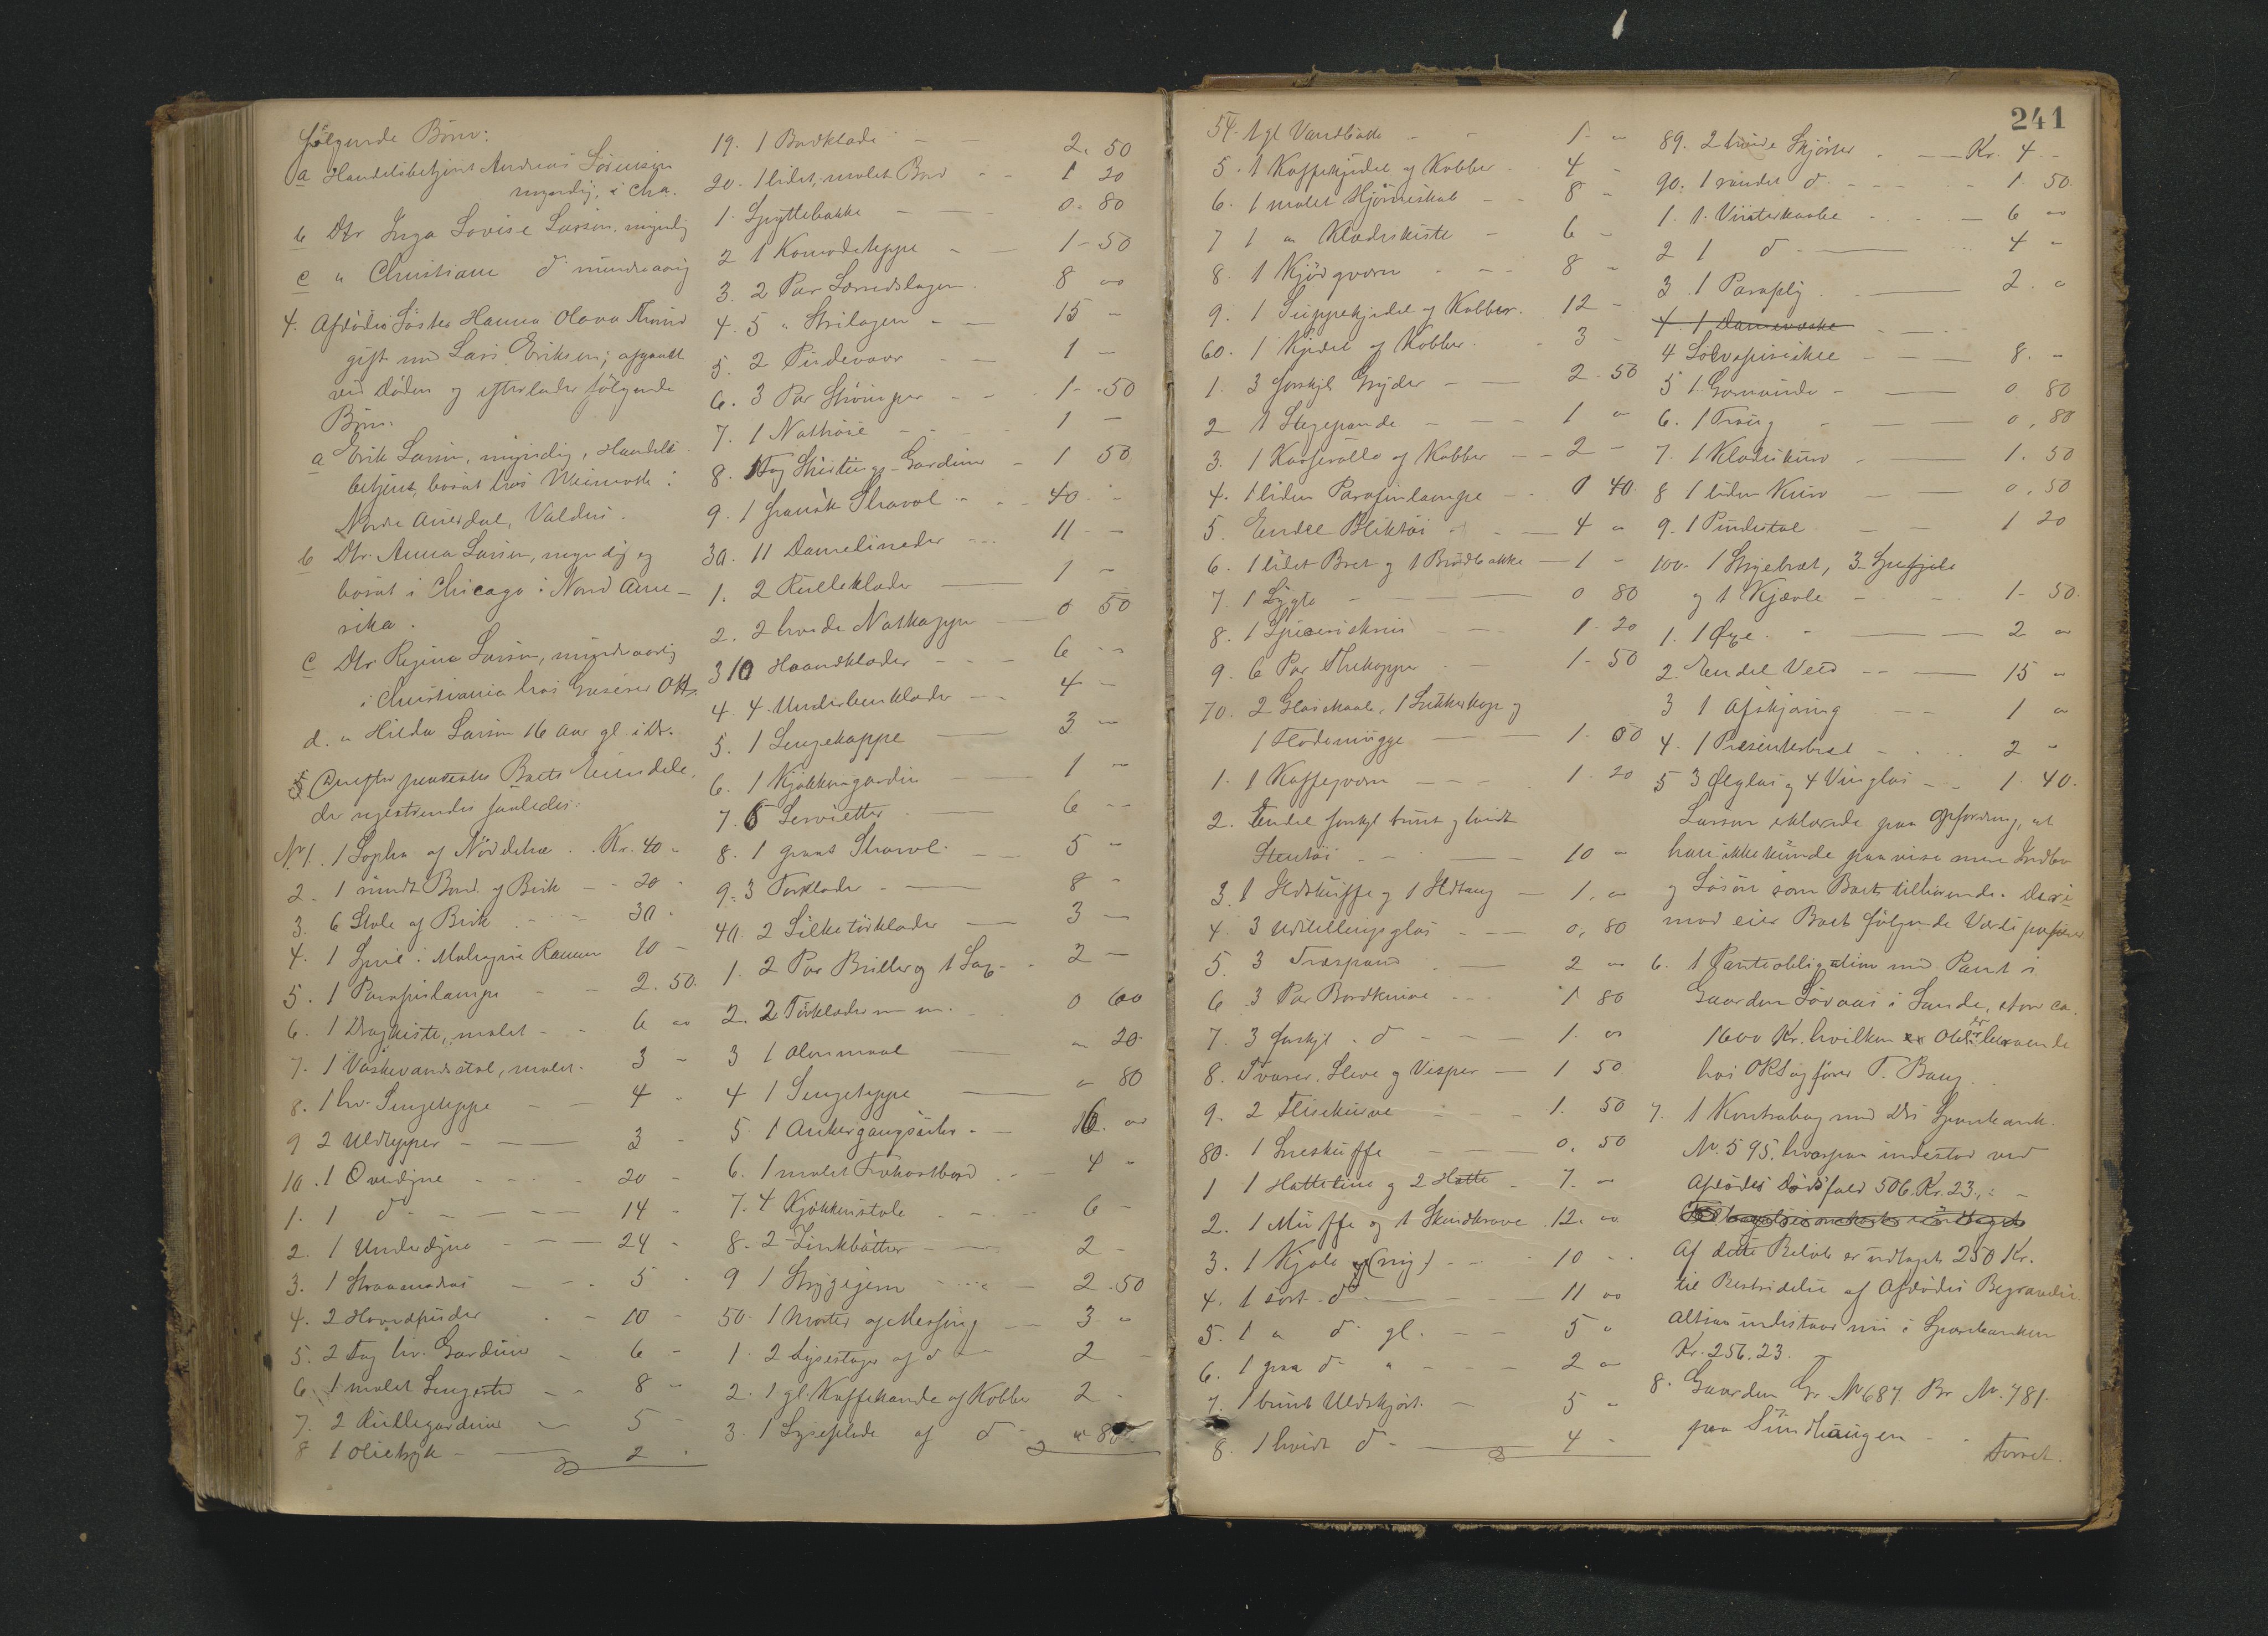 følgende Børn:
a Handelsbetjent Andreas Sørensen
myndig, i Chra.
b Dtr Inga Lovise Larsen, myndig
c " Christiane do mindreaarig
4. Afdødes Søster Hanna Olava Trond
gift med Lars Eriksen; afgaaet
ved Døden og efterlader følgende
Børn.
a Erik Larsen, myndig, Handels-
betjent, bosat hos i
Nordre Aurdal, Valdres.
b Dtr. Anna Larsen, myndig og
bosat i Chicago i Nord Ame-
rika.
c Dtr Regina Larsen, mindreaarig
i Christiania hos
d. " Hilda Larsen 16 Aar gl. i Dr.
Derefter Boets Eiendele,
der registreredes saaledes:
No 1. 1 Sopha af Nøddetræ . . Kr. 40 "
2. 1 rundt Bord af Birk - - 20 -
3. 6 Stole af Birk - - - 30 -
4. 1 Speil i Mahogni Ramme 10 -
5. 1 Parafinlampe - - 2. 50.
6. 1 Dragkiste, malet - - 6 "
7. 1 Vaskevandsstol, malet. 3 -
8. 1 hv. Sengeteppe - - 4 -
9 2 Uldtepper - - 3 -
10. 1 Overdyne - - - 20 -
1. 1 do - - - 14 -
2. 1 Underdyne - - 24 -
3. 1 Straamadras - - 5 -
4. 2 Hovedpuder - 10 -
5. 2 Fag hv. Gardiner - 6 -
6. 1 malet Sengested - - 8 -
7. 2 Rullegardiner - 5 -
8 1 Olietryk - 2 -
19. 1 Bordklæde - - 2. 50
20. 1 lidet, malet Bord - - 1 20
1. Spyttebakke - - 0. 80
2 1 Komodeteppe - - 1 - 50
3. 2 Par Lærredslagen. 8 "
4. 5 " Strilagen - - 15 -
5. 2 Pudevaar - - 1 -
6. 3 Par Strømper - - 1 - 50
7. 1 Nattrøie - - 1 -
8. 1 Fag Shirtings-Gardiner - 1 50
9. 1 fransk Shavel - - 40 - -
30. 11 Damelinneder - - - 11 - -
1. 2 Rulleklæder - 1 -
2. 2 hvide Natkapper - 0 50
3 10 Haandklæder - - - 6 - -
4. 4. Underbenklæder - - 4 -
5. 1 Sengekappe - 3 -
6. 1 Kjøkkengardin - 1 -
7. 6 Servietter - 6 - -
8. 1 graat Shavel - 5 -
9. 3 Forklæder - - 8 -
40. 2 Silketørklæder - 3 -
1. 2 Par Briller og 1 - 2 -
2. 2 Tørklæder m m. 0 60
3 1 Alenmaal - " 20
4 1 Sengeteppe - " 80
5 1 Ankergangsuhr - - 16. "
6. 1 malet Frokostbord - - 4 -
7. 4 Kjøkkenstole - 6 -
8. 2 Zinkbøtter - - 2 -
9 1 Strygejern - - - 2. 50
50. 1 Morter af Messing - 3 "
1. 2 Lysestager af do - 2 -
2. 1 gl. Kaffekande af Kobber 2 -
3. 1 Lyseplade af do - " 80
241
54. 1 gl Vandbøtte - - 1 - "
5. 1 Kaffekjedel af Kobber - 4 -
6. 1 malet Hjørneskab - - 8 -
7 1 " Klædeskiste - 6 -
8. 1 Kjødqværn - - - 8 -
9. 1 Suppekjedel af Kobber. 12 -
60. 1 Kjedel af Kobber. - 3 -
1. 3 forskjl. Gryder - - 2. 50
2 1 Stegepande - - - 1 "
3. 1 Kasserolle af Kobber - - 2 -
4. 1 liden Parafinlampe - - 0 40.
5. Endel Bliktøi - - - 4 "
6. 1 lidet Bret og 1 Brødbakke - 1 -
7. 1 Lygte - - - 0 80
8. 1 - - 1 - 20
9. 6 Par Thekopper - - 1 - 50
70. 2 Glasskaale, 1 Sukkerkop og
1 Flødemugge - - 1 - 50
1. 1 Kaffeqværn - - - 1 - 20
2. Endel forskjl. brunt og hvidt
Stentøi - - - 10 "
3. 1 Ildskuffe og 1 Ildtang - 1. "
4. 3 glas - - - 0. 80
5. 3 Træspand - - 2 "
6 3 Par Bordknive - - - 1 80
7. 3 forskjl. do - - - 1. "
8. Tvarer, Sleve og Visper - 1 50
9. 2 Fliskurve - - - 1. 50
80. 1 Sneskuffe - - 0. 50
1 1 Hattetine og 2 Hatte - 7. -
2. 1 Muffe og 1 Skindkrave 12. "
3. 1 Kjole (ny) - - - 10 - -
4. 1 sort do - - - 11 "
5. 1 " do gl. - - 5 "
6. 1 graa do " - - - 2 "
7. 1 brunt Uldskjørt - 5 "
8. 1 hvidt do - - 4 -
89. 2 hvide Skjørter - - Kr. 4 -
90. 1 do - - - - 1. 50.
1. 1. Vinterkaabe - - - 6 "
2 1 do - - - 4 "
3 1 Paraply - - 2. "
4. 1 Dameveske -
4 Sølvspiseskee - - - 8. -
5 1. Garnvinde - - 0 80
6. 1 Traug - - 0, 80
7. 1 Klædeskurv - - 1. 50
8 1 liden Kurv - - 0. 50
9. 1 Pindestol - - 1 20
100. 1 Strygebræt, 3
og 1 Kjævle - - - 1 - 50.
1. 1 Øxe. - - - 2 "
2. Endel Veed - - - 15 "
3 1 Afskjæring - - 1 "
4. 1 Presenterbret - - - 2 "
5 3 Ølglas og 4 Vinglas - - 1. 40.
Larsen erklærede paa Opfordring, at
han ikke kunde paavise mere Indbo
og Løsøre som Boet tilhørende. Deri-
mod eier Boet følgende Værdipapirer
6. 1 Panteobligation med Pant i
Gaarden Løvaas i Sande, stor ca.
1600 Kr. hvilken er beroende
hos ORSagfører T. Bang.
7. 1 Kontrabog med Drs Sparebank
No. 595. hvorpaa indestod ved
Afdødes Dødsfald 506. Kr. 23. -
Af dette Beløb er udtaget 250 Kr.
til Bestridelse af Afdødes Begravelse.
altsaa indestaar nu i Sparebanken
Kr. 256. 23.
8. Gaarden Gr. No 687. Br No. 781.
paa Sundhaugen - -
Forret.